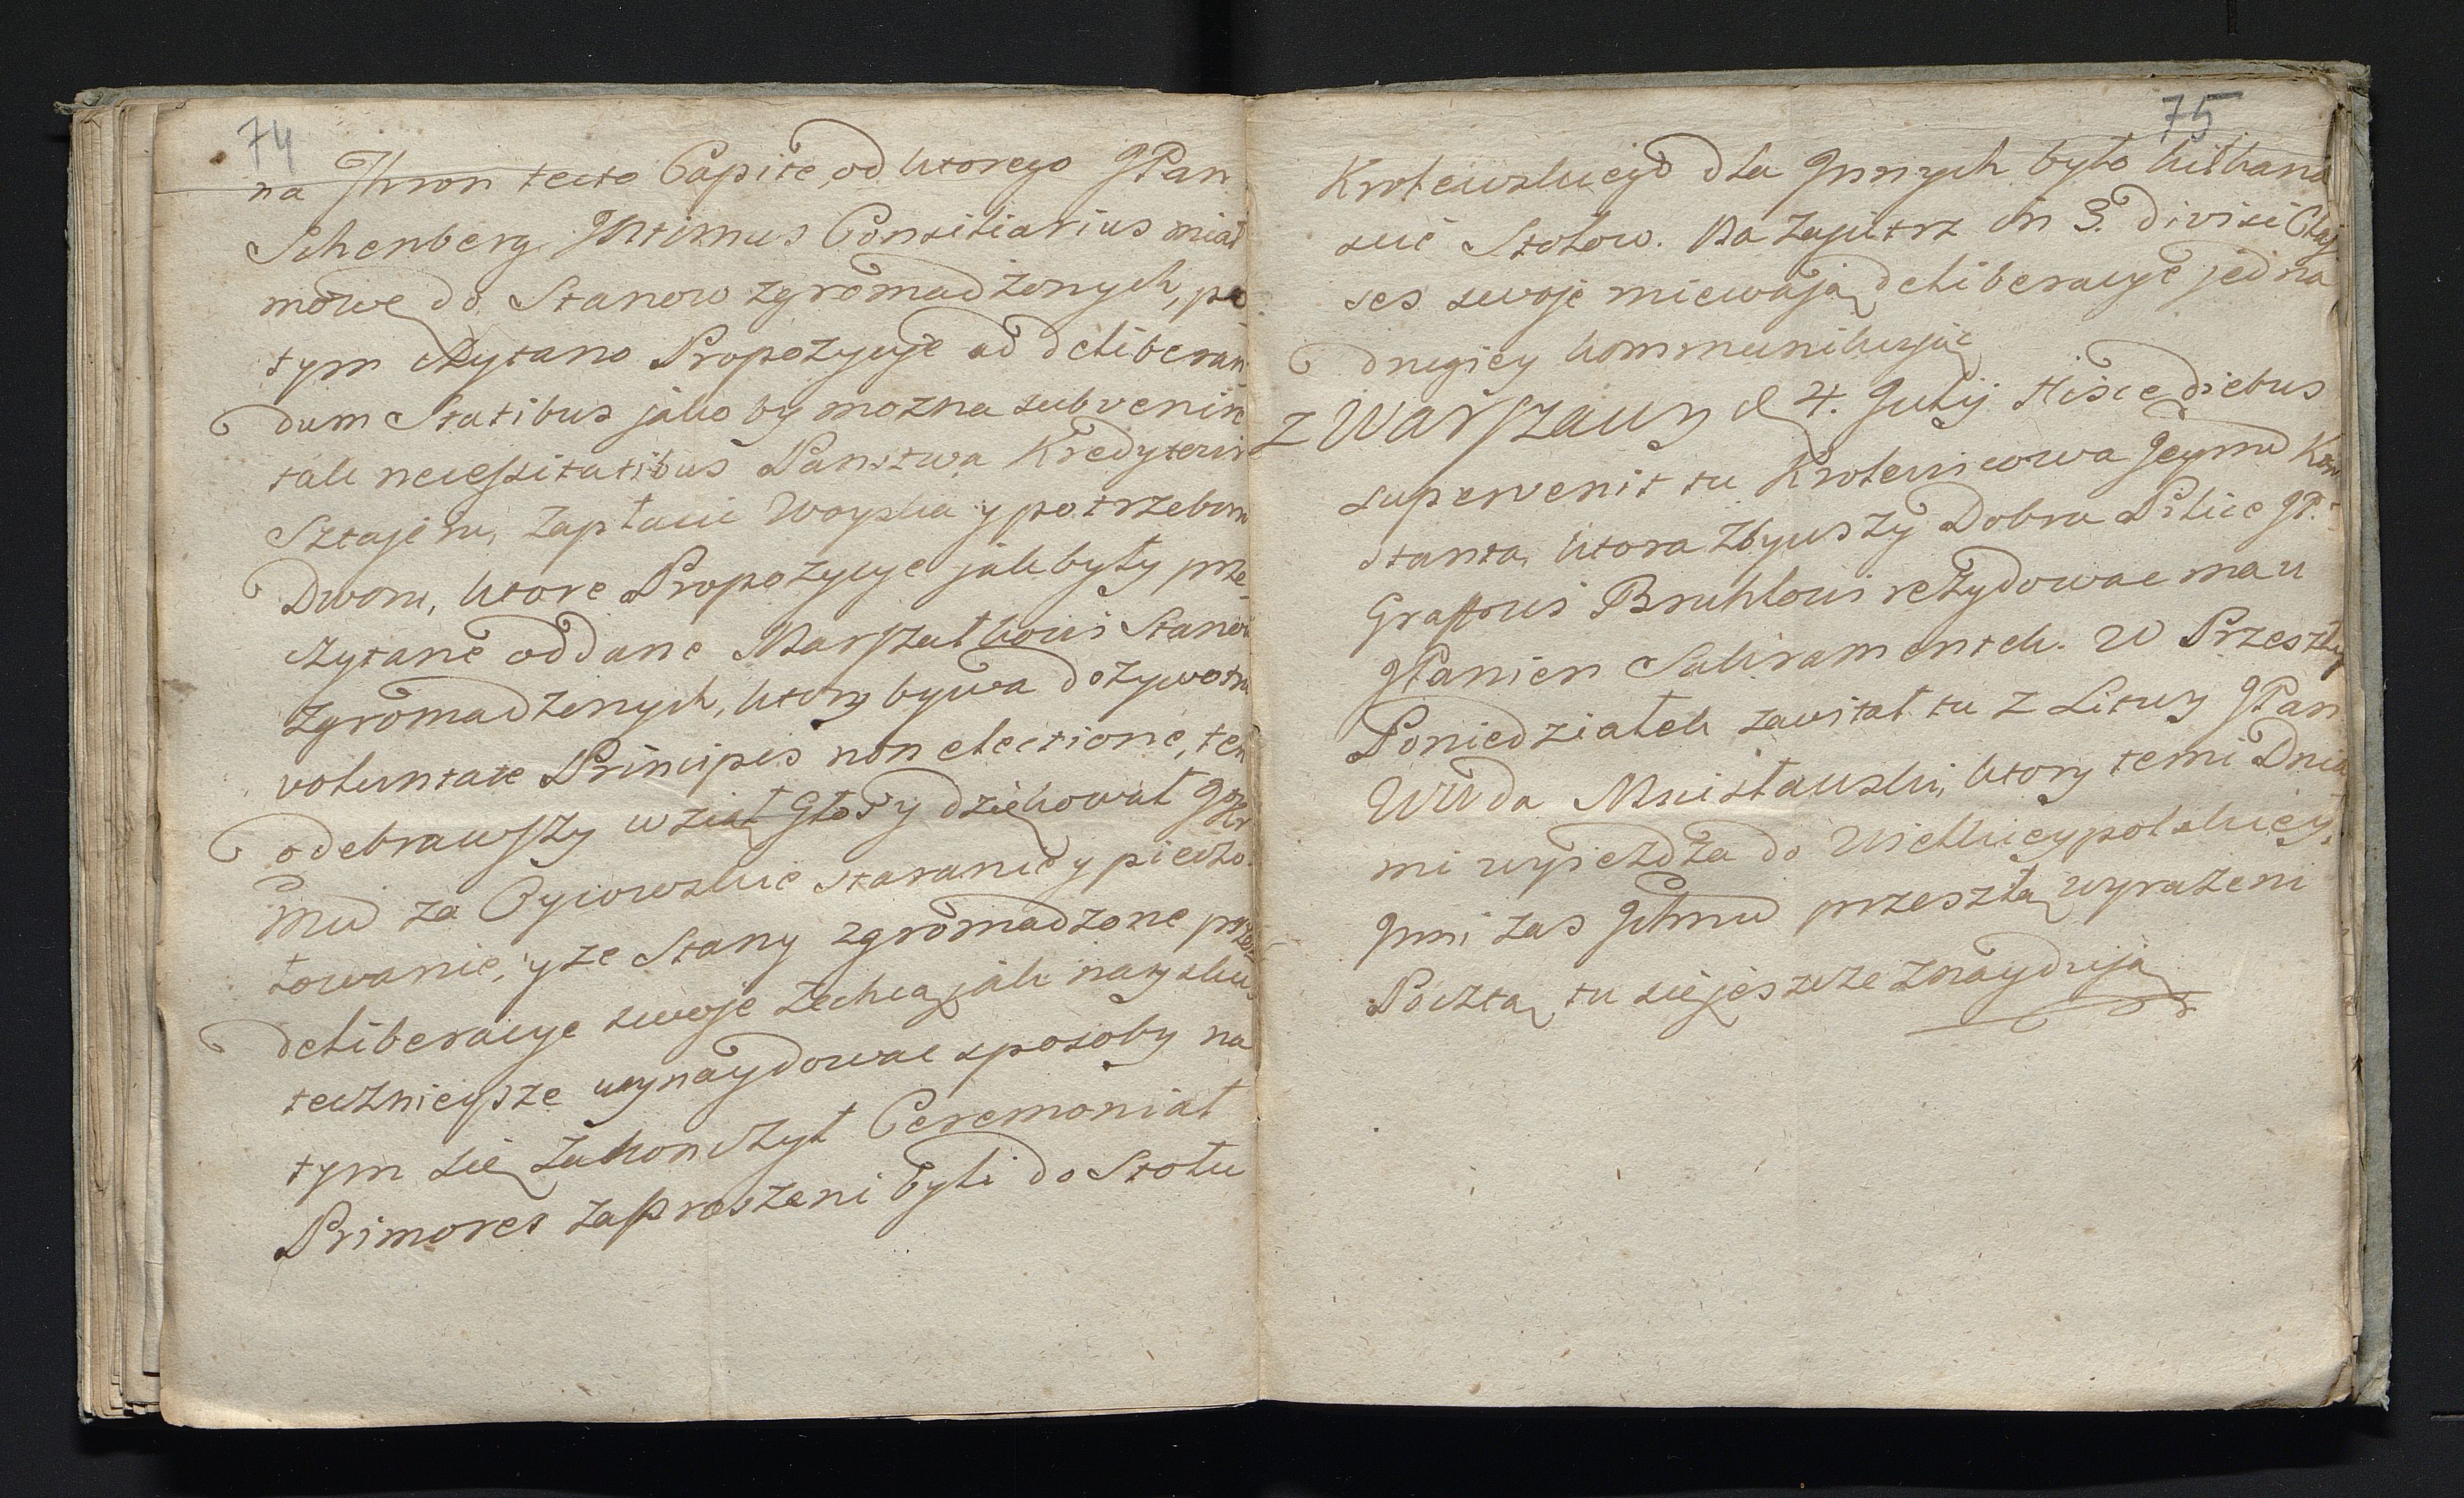 74
na Thron tecto Capite, od ktorego JPan
Schenberg Intimus Consiliarius miał
mowę do Stanow zgromadzonych, po
tym czytano Propozycyje ad deliberan-
dum Statibus jako by mozna subvenire
tak necessitatibus Panstwa Kredytowi
Sztajeru, zapłacie Woyska y potrzebom
Dworu, ktore Propozycye jak były prze-
czytane oddane Marszałkowi Stanow
zgromadzonych, ktory bywa dozywotni
voluntate Principis non electione, ten
odebrawszy wziął Głos y dziękował JKr
Mci za Oycowskie staranie y pieczo-
towanie, y ze Stany zgromadzone przez
deliberacye swoje zechcą jak nayskut
tecznieysze wynaydowac sposoby na
tym się zakonczył Ceremoniał
Primores zaproszeni byli do Stołu
75
Krolewskiego dla Jnnych było kilkana
scie Stołow. Na zajutrz in 3. divisi Clas
ses swoje miewają deliberacye jedna
drugiey kommunikując
z Warszawy d 4. Julij Hisce diebus
supervenit tu Krolewicowa Jeymć Kon
stanta, ktora zbywszy Dobra Pilice JP.
Graffowi Bruhlowi rezydowac ma u
JPanien Sakramentek. W Przeszły
Poniedziałek zawitał tu z Litwy JPan
WWda Mscisławski, ktory temi Dnia
mi wyiezdza do Wielkieypolskiey,
Jnni zas Ichmć przeszłą wyrazeni
Pocztą tu się jeszcze znaydują